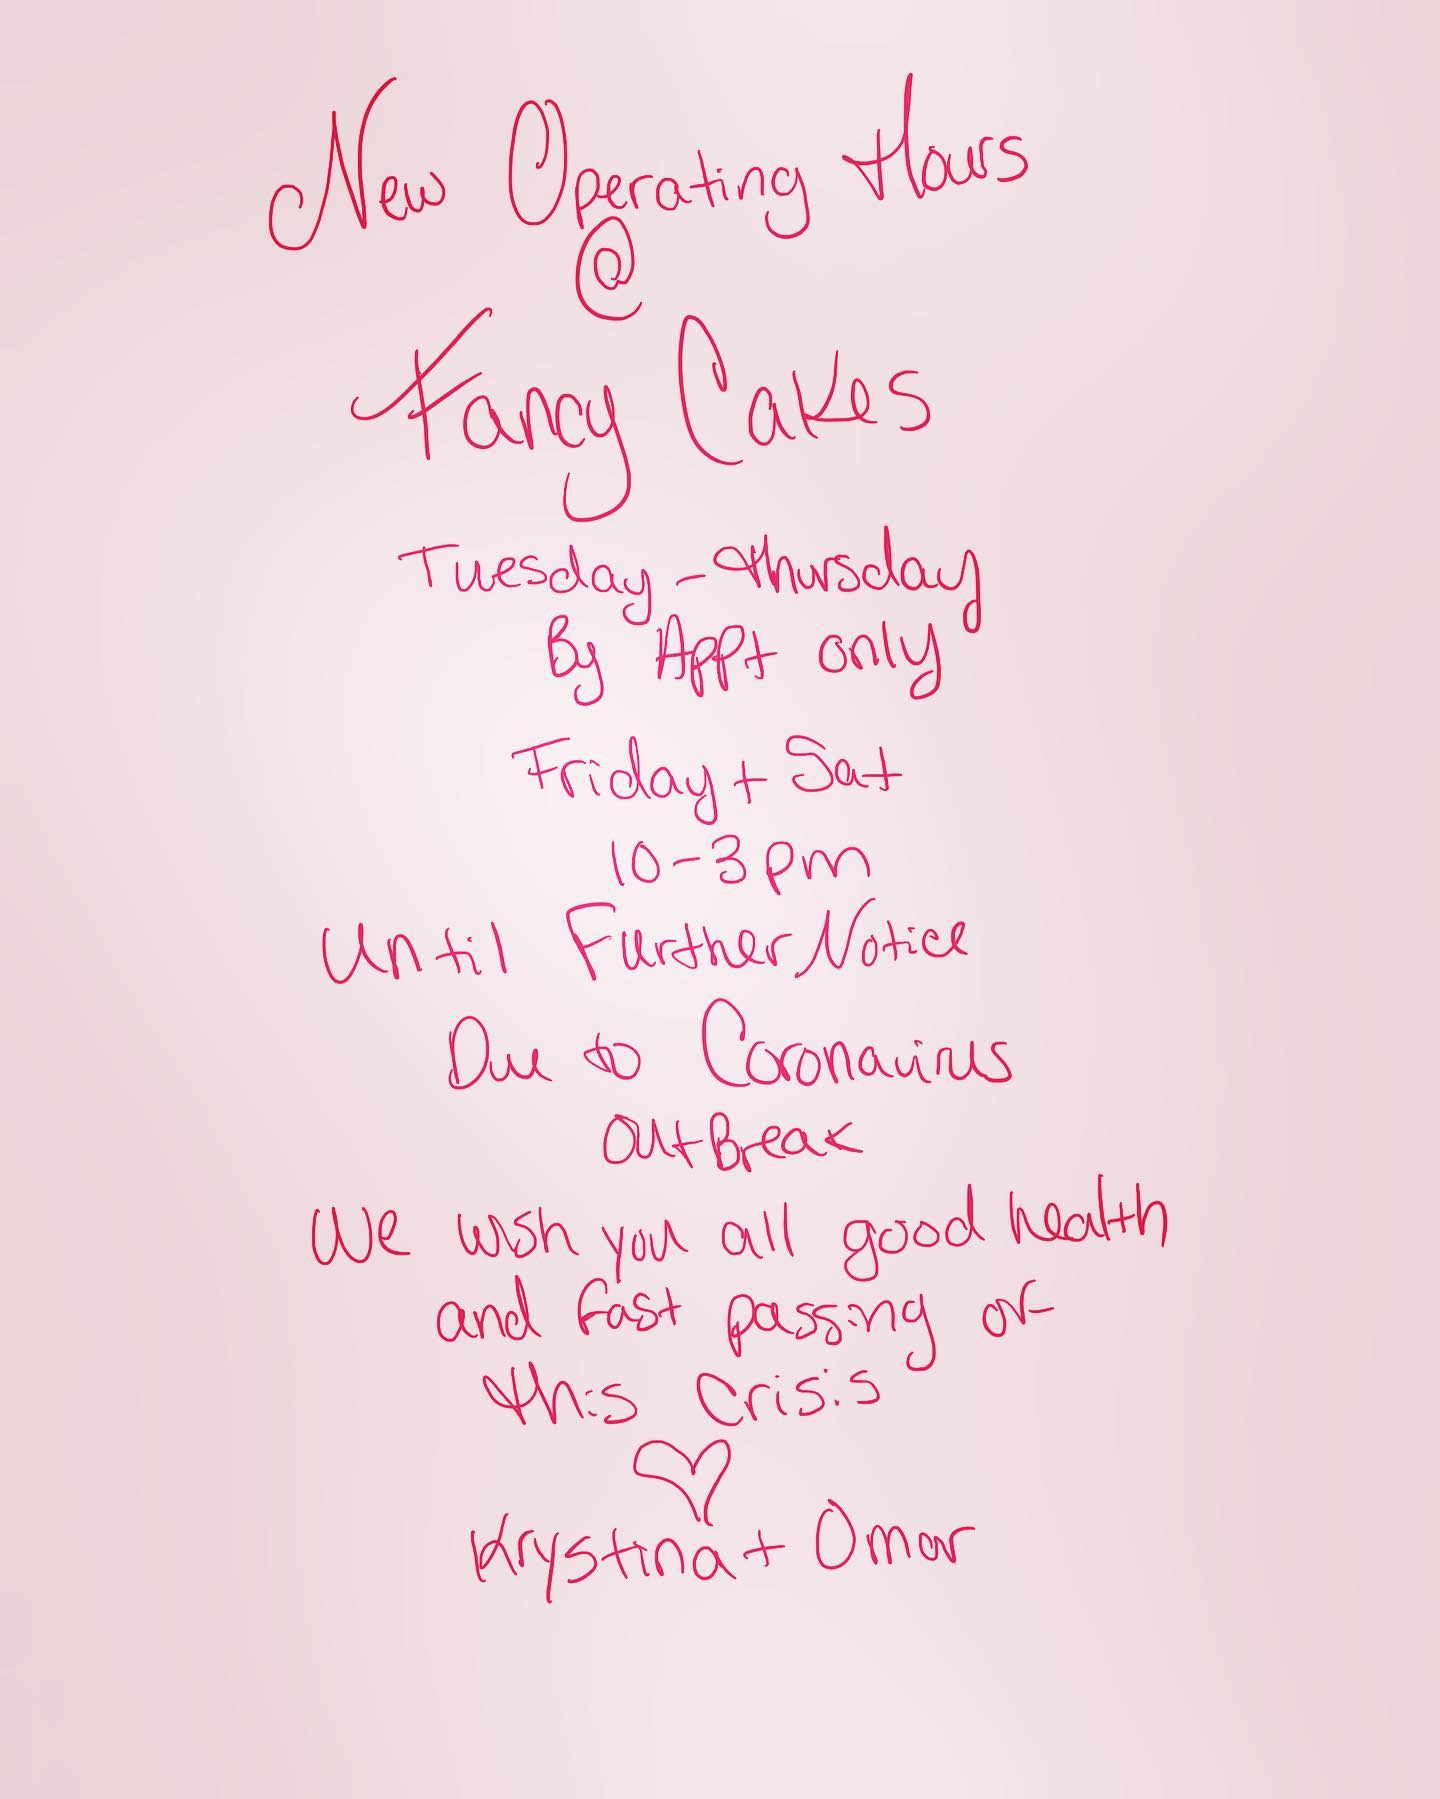 New Operating Hours
@
Fancy Cakes
Tuesday - Thursday
By Appt only
Friday + Sat
10-3pm
Until Further Notice
Due to Coronavirus
OutBreak
We wish you all good health
and fast passing of
this crisis
Krystina + Omar